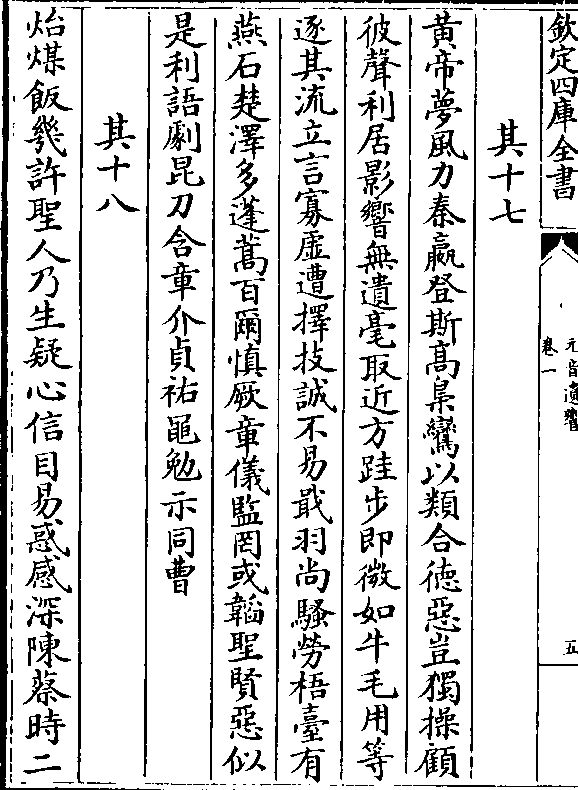 欽定四庫全書
元音遺響
卷一
五
其十七
黃帝夢風力秦嬴登斯高梟鸞以類合德惡豈獨操顧
彼聲利居影響無遺毫取近方跬步即微如牛毛用等
逐其流立言寡虛遭擇技誠不易戢羽尚騷勞梧臺有
燕石楚澤多蓬蒿百爾慎厥章儀監罔或韜聖賢惡似
是利語劇昆刀含章介貞祐黽勉示同曹
其十八
炲煤飯幾許聖人乃生疑心信目易惑感深陳蔡時二